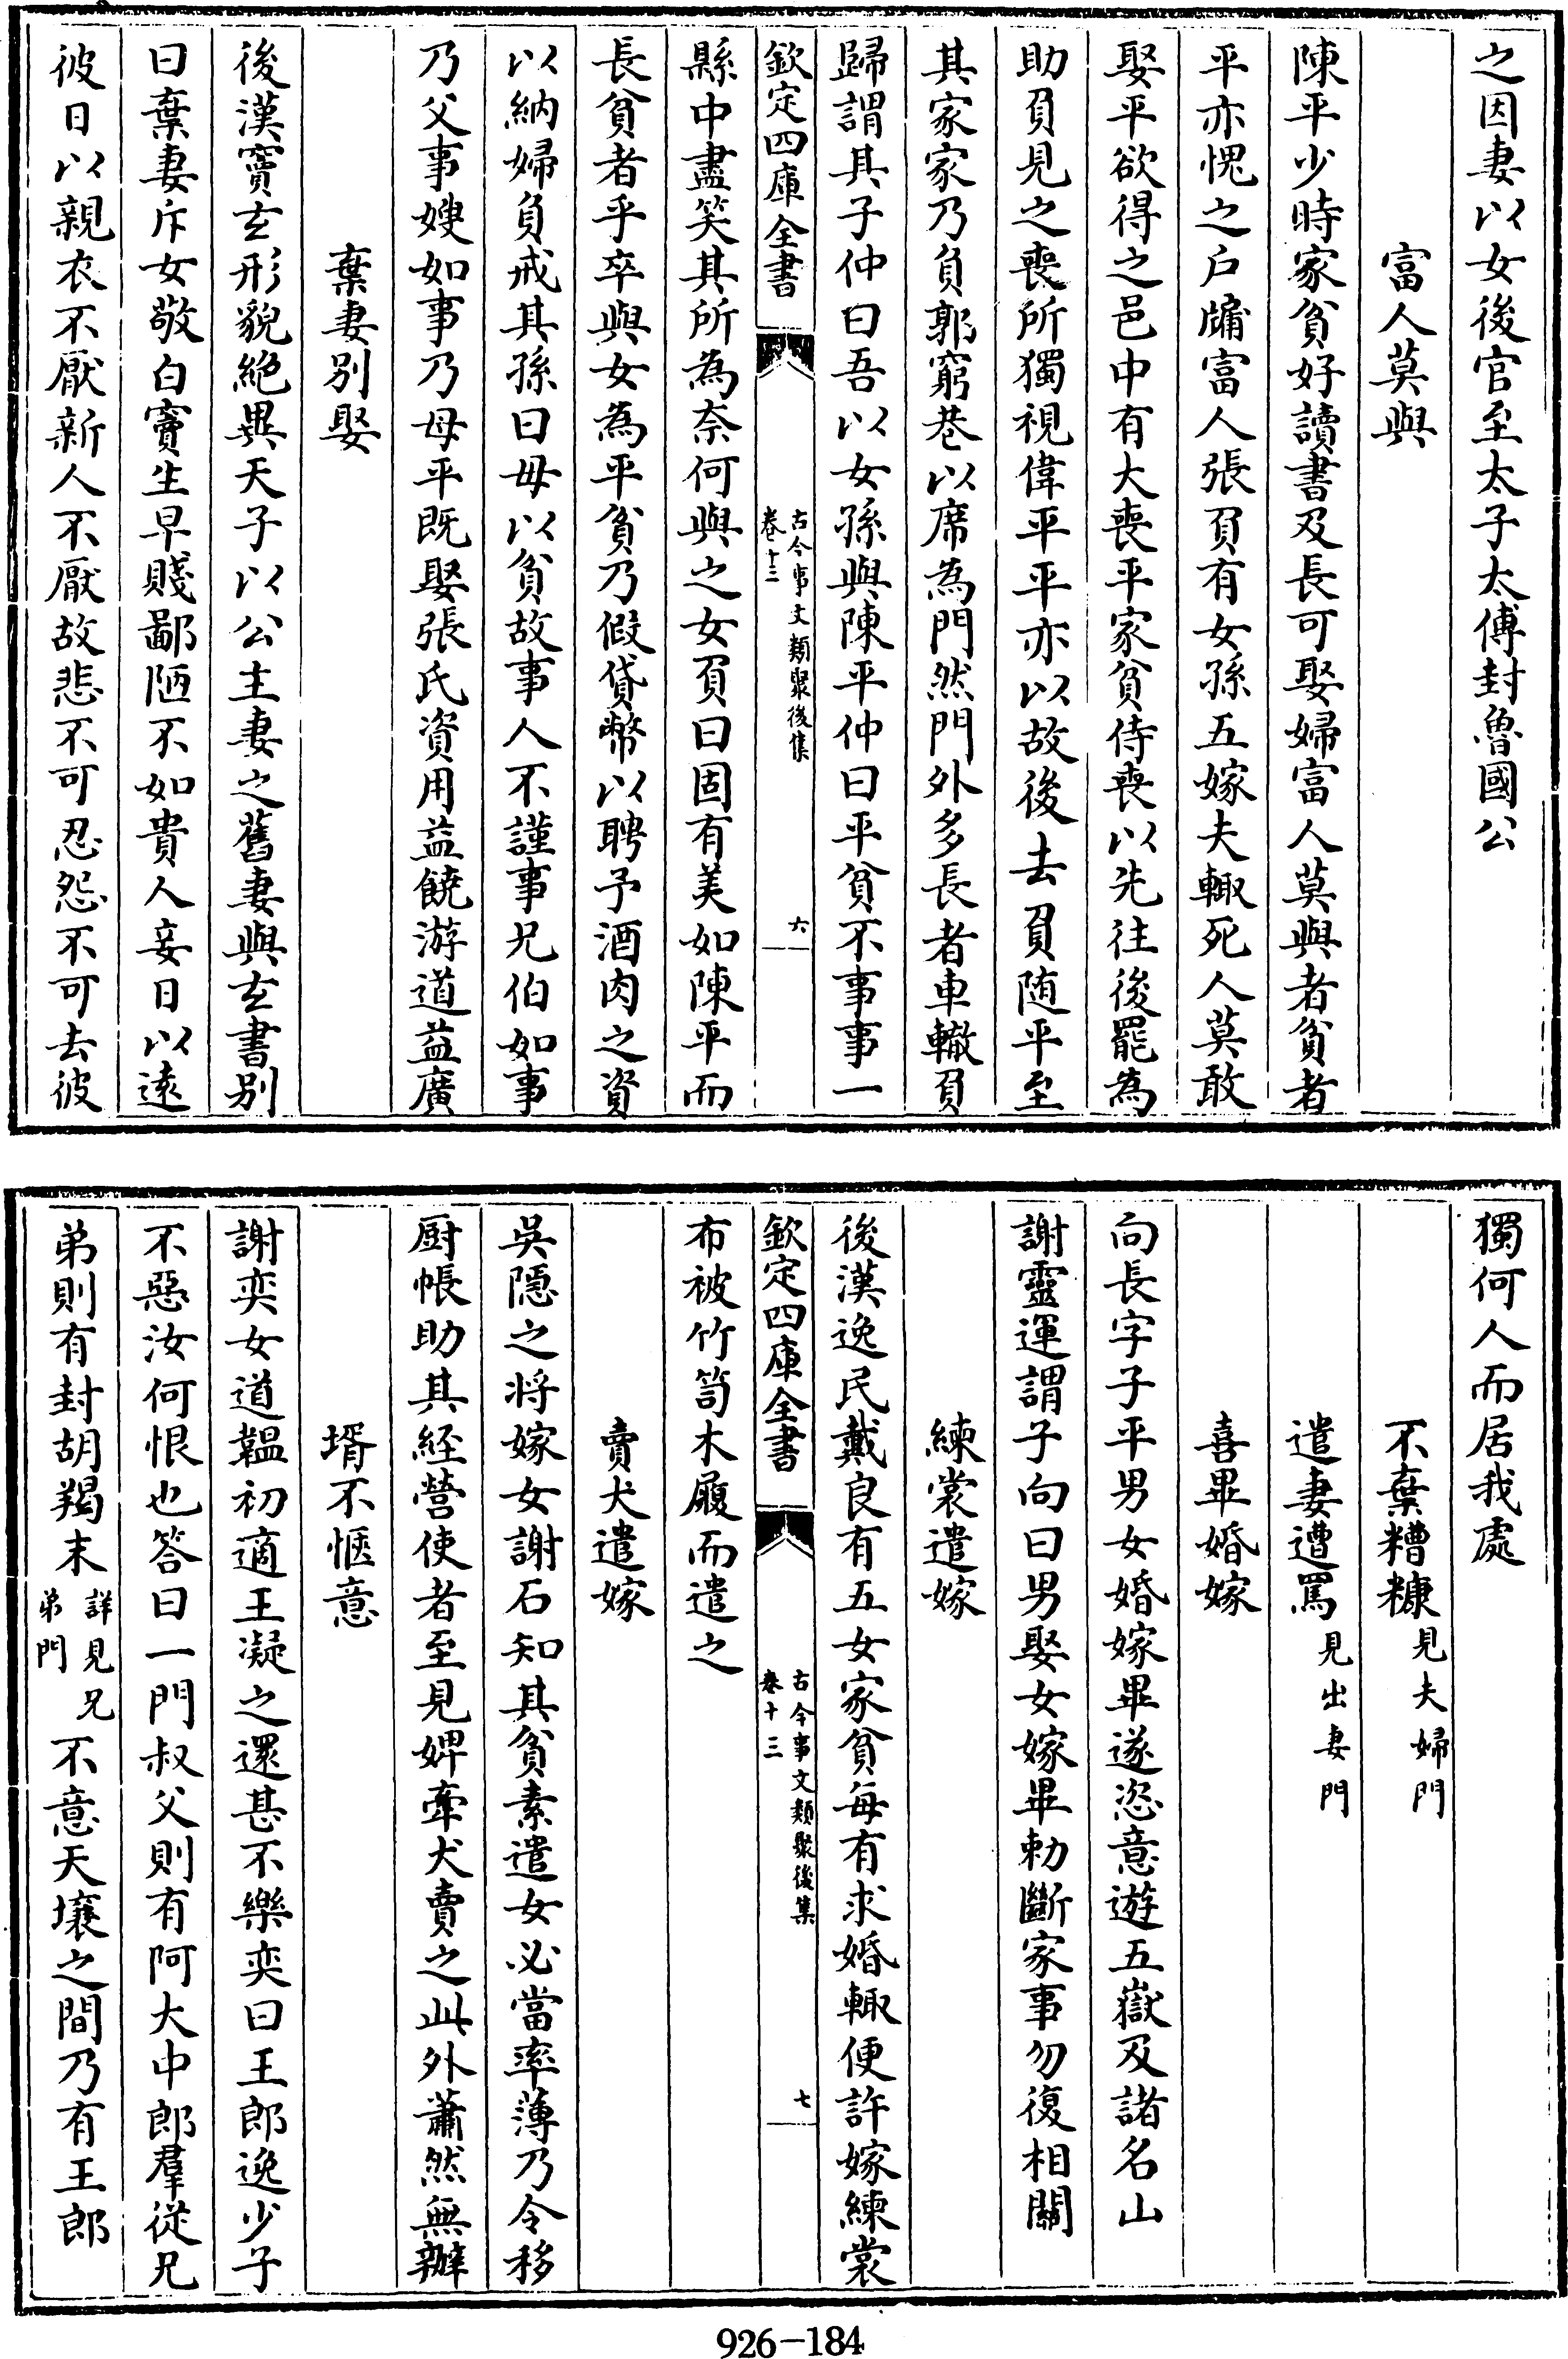 之因妻以女後官至太子太傅封魯國公
富人莫與
陳平少時家貧好讀書及長可娶婦富人莫與者貧者
平亦愧之户牖富人張負有女孫五嫁夫輒死人莫敢
娶平欲得之邑中有大喪平家貧侍喪以先往後罷為
助負見之喪所獨視偉平平亦以故後去負随平至
其家家乃負郭窮巷以席為門然門外多長者車轍負
歸謂其子仲曰吾以女孫與陳平仲曰平貧不事事一
欽定四庫全書
古今事文類聚後集
卷十三
六
縣中盡笑其所為奈何與之女負曰固有美如陳平而
長貧者乎卒與女為平貧乃假貸幣以聘予酒肉之資
以納婦負戒其孫曰毋以貧故事人不謹事兄伯如事
乃父事嫂如事乃母平既娶張氏資用益饒游道益廣
棄妻别娶
後漢竇玄形貌絶異天子以公主妻之舊妻與玄書别
曰棄妻斥女敬白竇生卑賤鄙陋不如貴人妾日以遠
彼日以親衣不厭新人不厭故悲不可忍怨不可去彼
獨何人而居我處
不棄糟糠見夫婦門
遣妻遭罵見出妻門
喜畢婚嫁
向長字子平男女婚嫁畢遂恣意遊五嶽及諸名山
謝靈運謂子向曰男娶女嫁畢勅斷家事勿復相關
練裳遣嫁
後漢逸民戴良有五女家貧每有求婚輒便許嫁練裳
欽定四庫全書
古今事文類聚後集
卷十三
七
布被竹笥木履而遣之
賣犬遣嫁
吳隱之將嫁女謝石知其貧素遣女必當率薄乃令移
厨帳助其經營使者至見婢牽犬賣之此外蕭然無辦
壻不愜意
謝奕女道韞初適王凝之還甚不樂奕曰王郎逸少子
不惡汝何恨也答曰一門叔父則有阿大中郎羣從兄
弟則有封胡羯末詳見兄弟門不意天壤之間乃有王郎
926-184